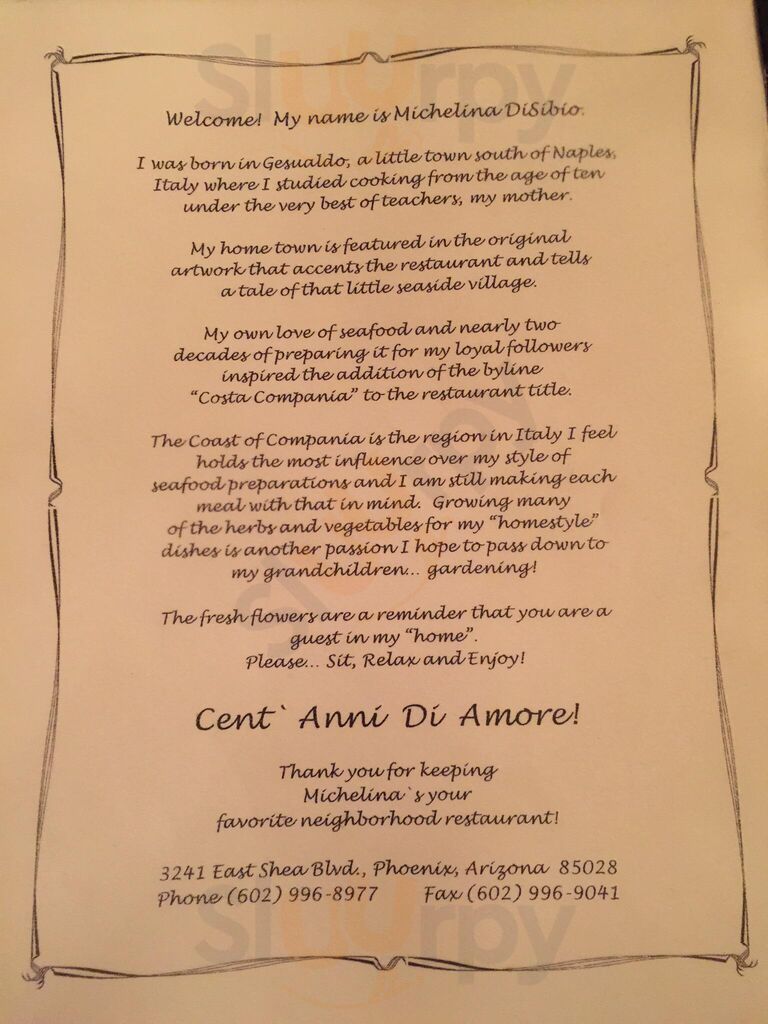 Welcome! My name is Michelina DiSibio.
I was born in Gesualdo, a little town south of Naples,
Italy where I studied cooking from the age of ten
under the very best of teachers, my mother.
My home town is featured in the original
artwork that accents the restaurant and tells
a tale of that little seaside village.
My own love of seafood and nearly two
decades of preparing it for my loyal followers
inspired the addition of the byline
"Costa Compania" to the restaurant title.
The Coast of Compania is the region in Italy I feel
holds the most influence over my style of
seafood preparations and I am still making each
meal with that in mind. Growing many
of the herbs and vegetables for my "homestyle"
dishes is another passion I hope to pass down to
my grandchildren... gardening!
The fresh flowers are a reminder that you are a
guest in my "home".
Please... Sit, Relax and Enjoy!
Cent` Anni Di Amore!
Thank you for keeping
Michelina`s your
favorite neighborhood restaurant!
3241 East Shea Blvd., Phoenix, Arizona 85028
Phone (602) 996-8977 Fax (602) 996-9041
Sluurpy
Sluurpy